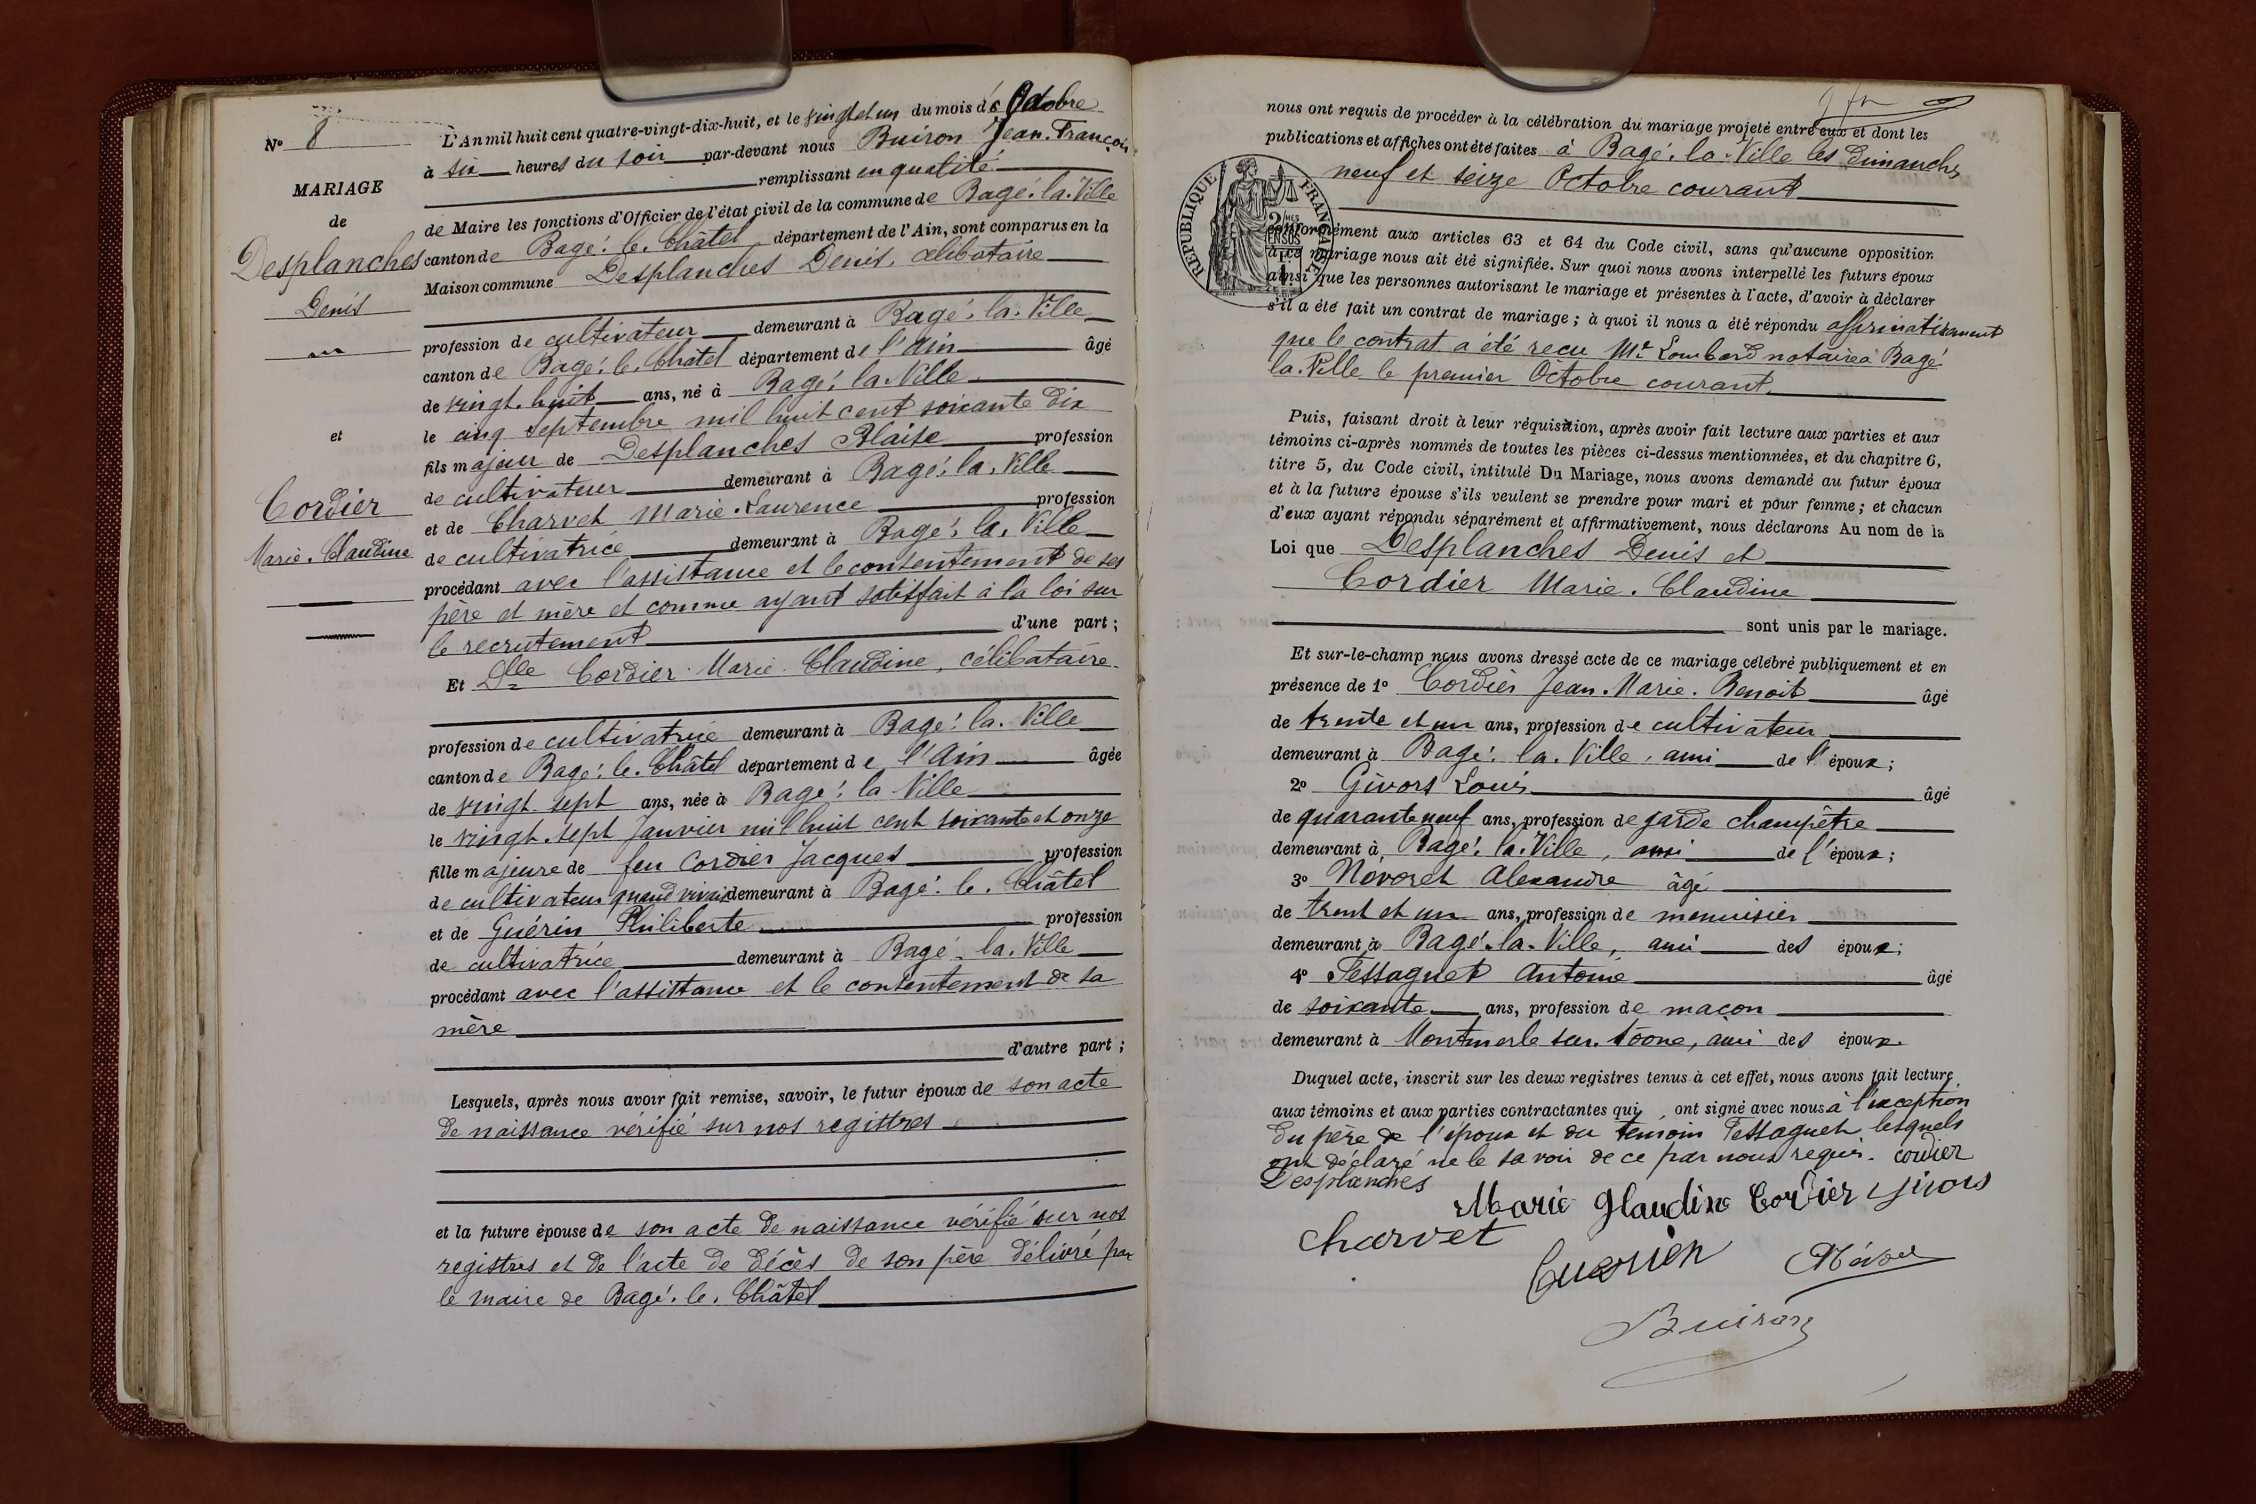 N° 8
MARIAGE
de
Desplanches
Denis
et
Cordier
Marie. Claudine
L'An mil huit cent quatre-vingt-dix-huit, et le vingt et un du mois de Octobre
à six heures du soir par-devant nous Buiron Jean. François
remplissant en qualité
de Maire les fonctions d'Officier de l'état civil de la commune de Bagé. la. Ville
canton de Bagé. le. Châtel département de l'Ain, sont comparus en la
Maison commune Desplanches Denis, célibataire
profession de cultivateur demeurant à Bagé. la. Ville
canton de Bagé. le. Châtel département de l'Ain âgé
de vingt. huit ans, né à Bagé. la. Ville
le cinq septembre mil huit cent soixante dix
fils majeur de Desplanches Blaise profession
de cultivateur demeurant à Bagé. la. Ville
et de Charvet Marie. Laurence profession
de cultivatrice demeurant à Bagé. la. Ville
procédant avec l'assistance et le consentement de ses
père et mère et comme ayant satisfait à la loi sur
le recrutement d'une part ;
Et Dlle Cordier Marie Claudine, célibataire
profession de cultivatrice demeurant à Bagé. la. Ville
canton de Bagé. le. Châtel département de l'Ain âgée
de vingt sept ans, née à Bagé. la Ville
le vingt. sept Janvier mil huit cent soixante et onze
fille majeure de feu Cordier Jacques profession
de cultivateur quand vivait demeurant à Bagé. le. Châtel
et de Guérin Philiberte profession
de cultivatrice demeurant à Bagé. la. Ville
procédant avec l'assistance et le consentement de sa
mère
d'autre part ;
Lesquels, après nous avoir fait remise, savoir, le futur époux de son acte
de naissance vérifié sur nos registres
et la future épouse de son acte de naissance vérifié sur nos
registres et de l'acte de décès de son père délivré par
le maire de Bagé. le. Châtel
nous ont requis de procéder à la célébration du mariage projeté entre eux et dont les
publications et affiches ont été faites à Bagé. la. Ville les dimanches
neuf et seize Octobre courant
RÉPUBLIQUE FRANÇAISE
conformément aux articles 63 et 64 du Code civil, sans qu'aucune opposition
à ce mariage nous ait été signifiée. Sur quoi nous avons interpellé les futurs époux
ainsi que les personnes autorisant le mariage et présentes à l'acte, d'avoir à déclarer
s'il a été fait un contrat de mariage ; à quoi il nous a été répondu affirmativement
que le contrat a été reçu Me Lombard notaire à Bagé
la. Ville le premier Octobre courant.
Puis, faisant droit à leur réquisition, après avoir fait lecture aux parties et aux
témoins ci-après nommés de toutes les pièces ci-dessus mentionnées, et du chapitre 6,
titre 5, du Code civil, intitulé Du Mariage, nous avons demandé au futur époux
et à la future épouse s'ils veulent se prendre pour mari et pour femme ; et chacun
d'eux ayant répondu séparément et affirmativement, nous déclarons Au nom de la
Loi que Desplanches Denis et
Cordier Marie. Claudine
sont unis par le mariage.
Et sur-le-champ nous avons dressé acte de ce mariage célébré publiquement et en
présence de 1° Cordier Jean. Marie. Benoit âgé
de trente et un ans, profession de cultivateur
demeurant à Bagé. la. Ville, ami de l'époux ;
2° Givors Louis âgé
de quarante neuf ans, profession de garde champêtre
demeurant à Bagé. la. Ville, ami de l'époux ;
3° Novoret Alexandre âgé
de trent et un ans, profession de menuisier
demeurant à Bagé. la. Ville, ami des époux ;
4° Tessaguet Antoine âgé
de soixante ans, profession de maçon
demeurant à Montmerle sur. Saone, ami des époux.
Duquel acte, inscrit sur les deux registres tenus à cet effet, nous avons fait lecture
aux témoins et aux parties contractantes qui ont signé avec nous à l'exception
du père de l'époux et du témoin Tessaguet lesquels
ont déclaré ne le savoir de ce par nous requis. Cordier
Desplanches
Marie Glaudine Cordier Givors
Charvet
Guerien
Buiron